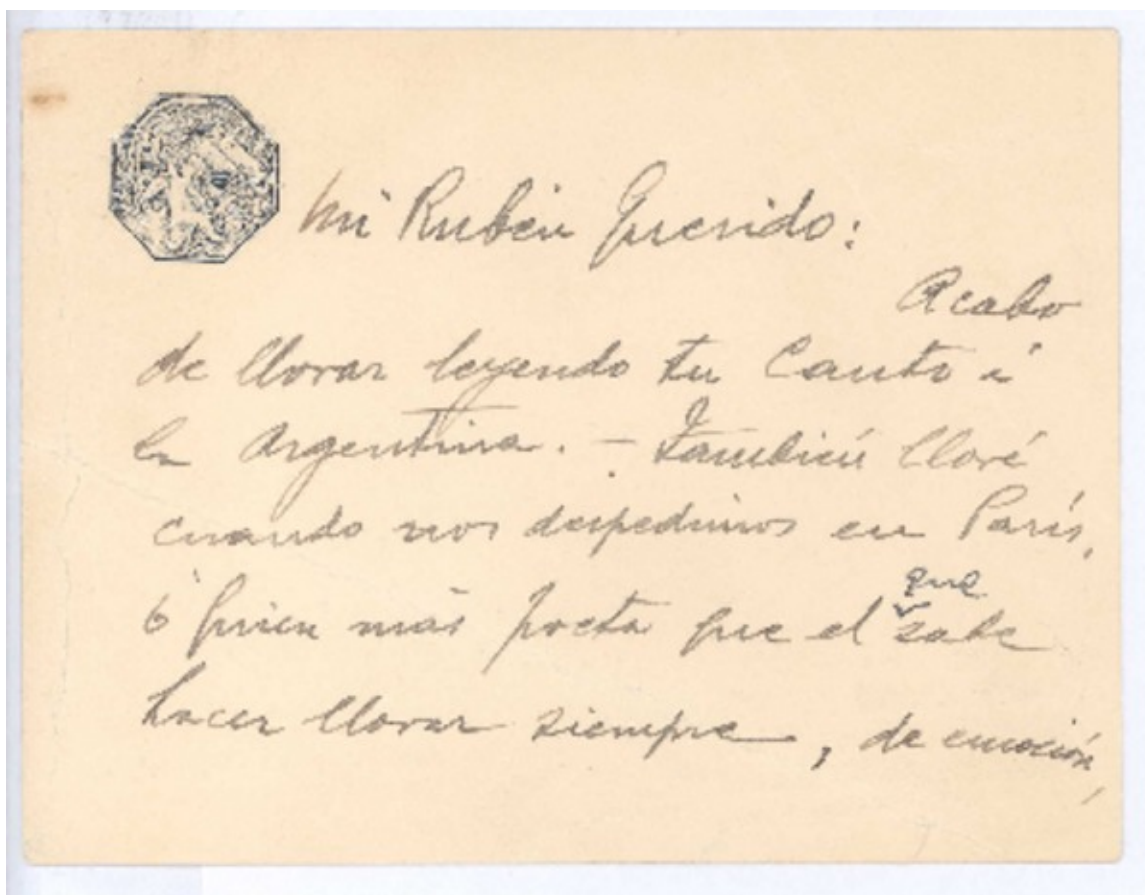 Mi Rubén Querido:
Acabo
de llorar leyendo tu Canto á
la Argentina. - También lloré
cuando nos despedimos en París,
quien más poeta que el que sabe
hacer llorar siempre, de emoción,